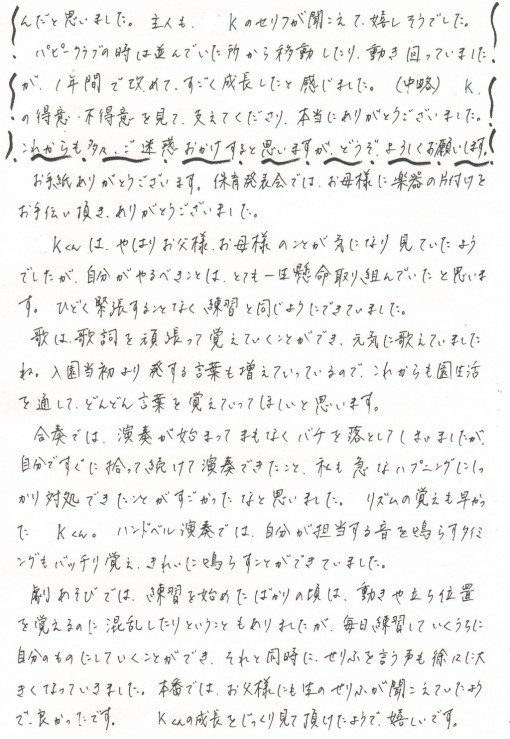 んだと思いました。 主人も、 Kのせりフが聞こえて、嬉しそうでした。
パピークラブの時は並んでいた所から移動したり、動き回っていました
が、1年間で改めて、すごく成長したと感じました。(中略) K、
の得意・不得意を見て、支えてくださり、本当にありがとうございました。
これからも多々、ご迷惑おかけすると思いますが、どうぞよろしくお願いします。
お手紙ありがとうございます。保育発表会では、お母様に楽器の片付けを
お手伝い頂き、ありがとうございました。
Kくんは、やはりお父様、お母様のことが気になり見ていたよう
でしたが、自分がやるべきことは、とても一生懸命取り組んでいたと思いま
す。ひどく緊張することなく練習と同じようにできていました。
歌は、歌詞を頑張って覚えていくことができ、元気に歌えていました
ね。入園当初より発する言葉も増えていっているので、これからも園生活
を通して、どんどん言葉を覚えていってほしいと思います。
合奏では、演奏が始まってまもなくバチを落としてしまいましたが、
自分ですぐに拾って続けて演奏できたこと、私も急なハプニングにしっ
かり対処できたことがすごかったなと思いました。リズムの覚えも早かっ
た Kくん。ハンドベル演奏では、自分が担当する音を鳴らすタイミ
ングもバッチリ覚え、きれいに鳴らすことができていました。
劇あそびでは、練習を始めたばかりの頃は、動きや立ち位置
を覚えるのに混乱したりということもありましたが、毎日練習していくうちに
自分のものにしていくことができ、それと同時に、せりふを言う声も徐々に大
きくなっていきました。本番では、お父様にも生のせりふが聞こえていたよう
で、良かったです。 Kくんの成長をじっくり見て頂けたようで、嬉しいです。